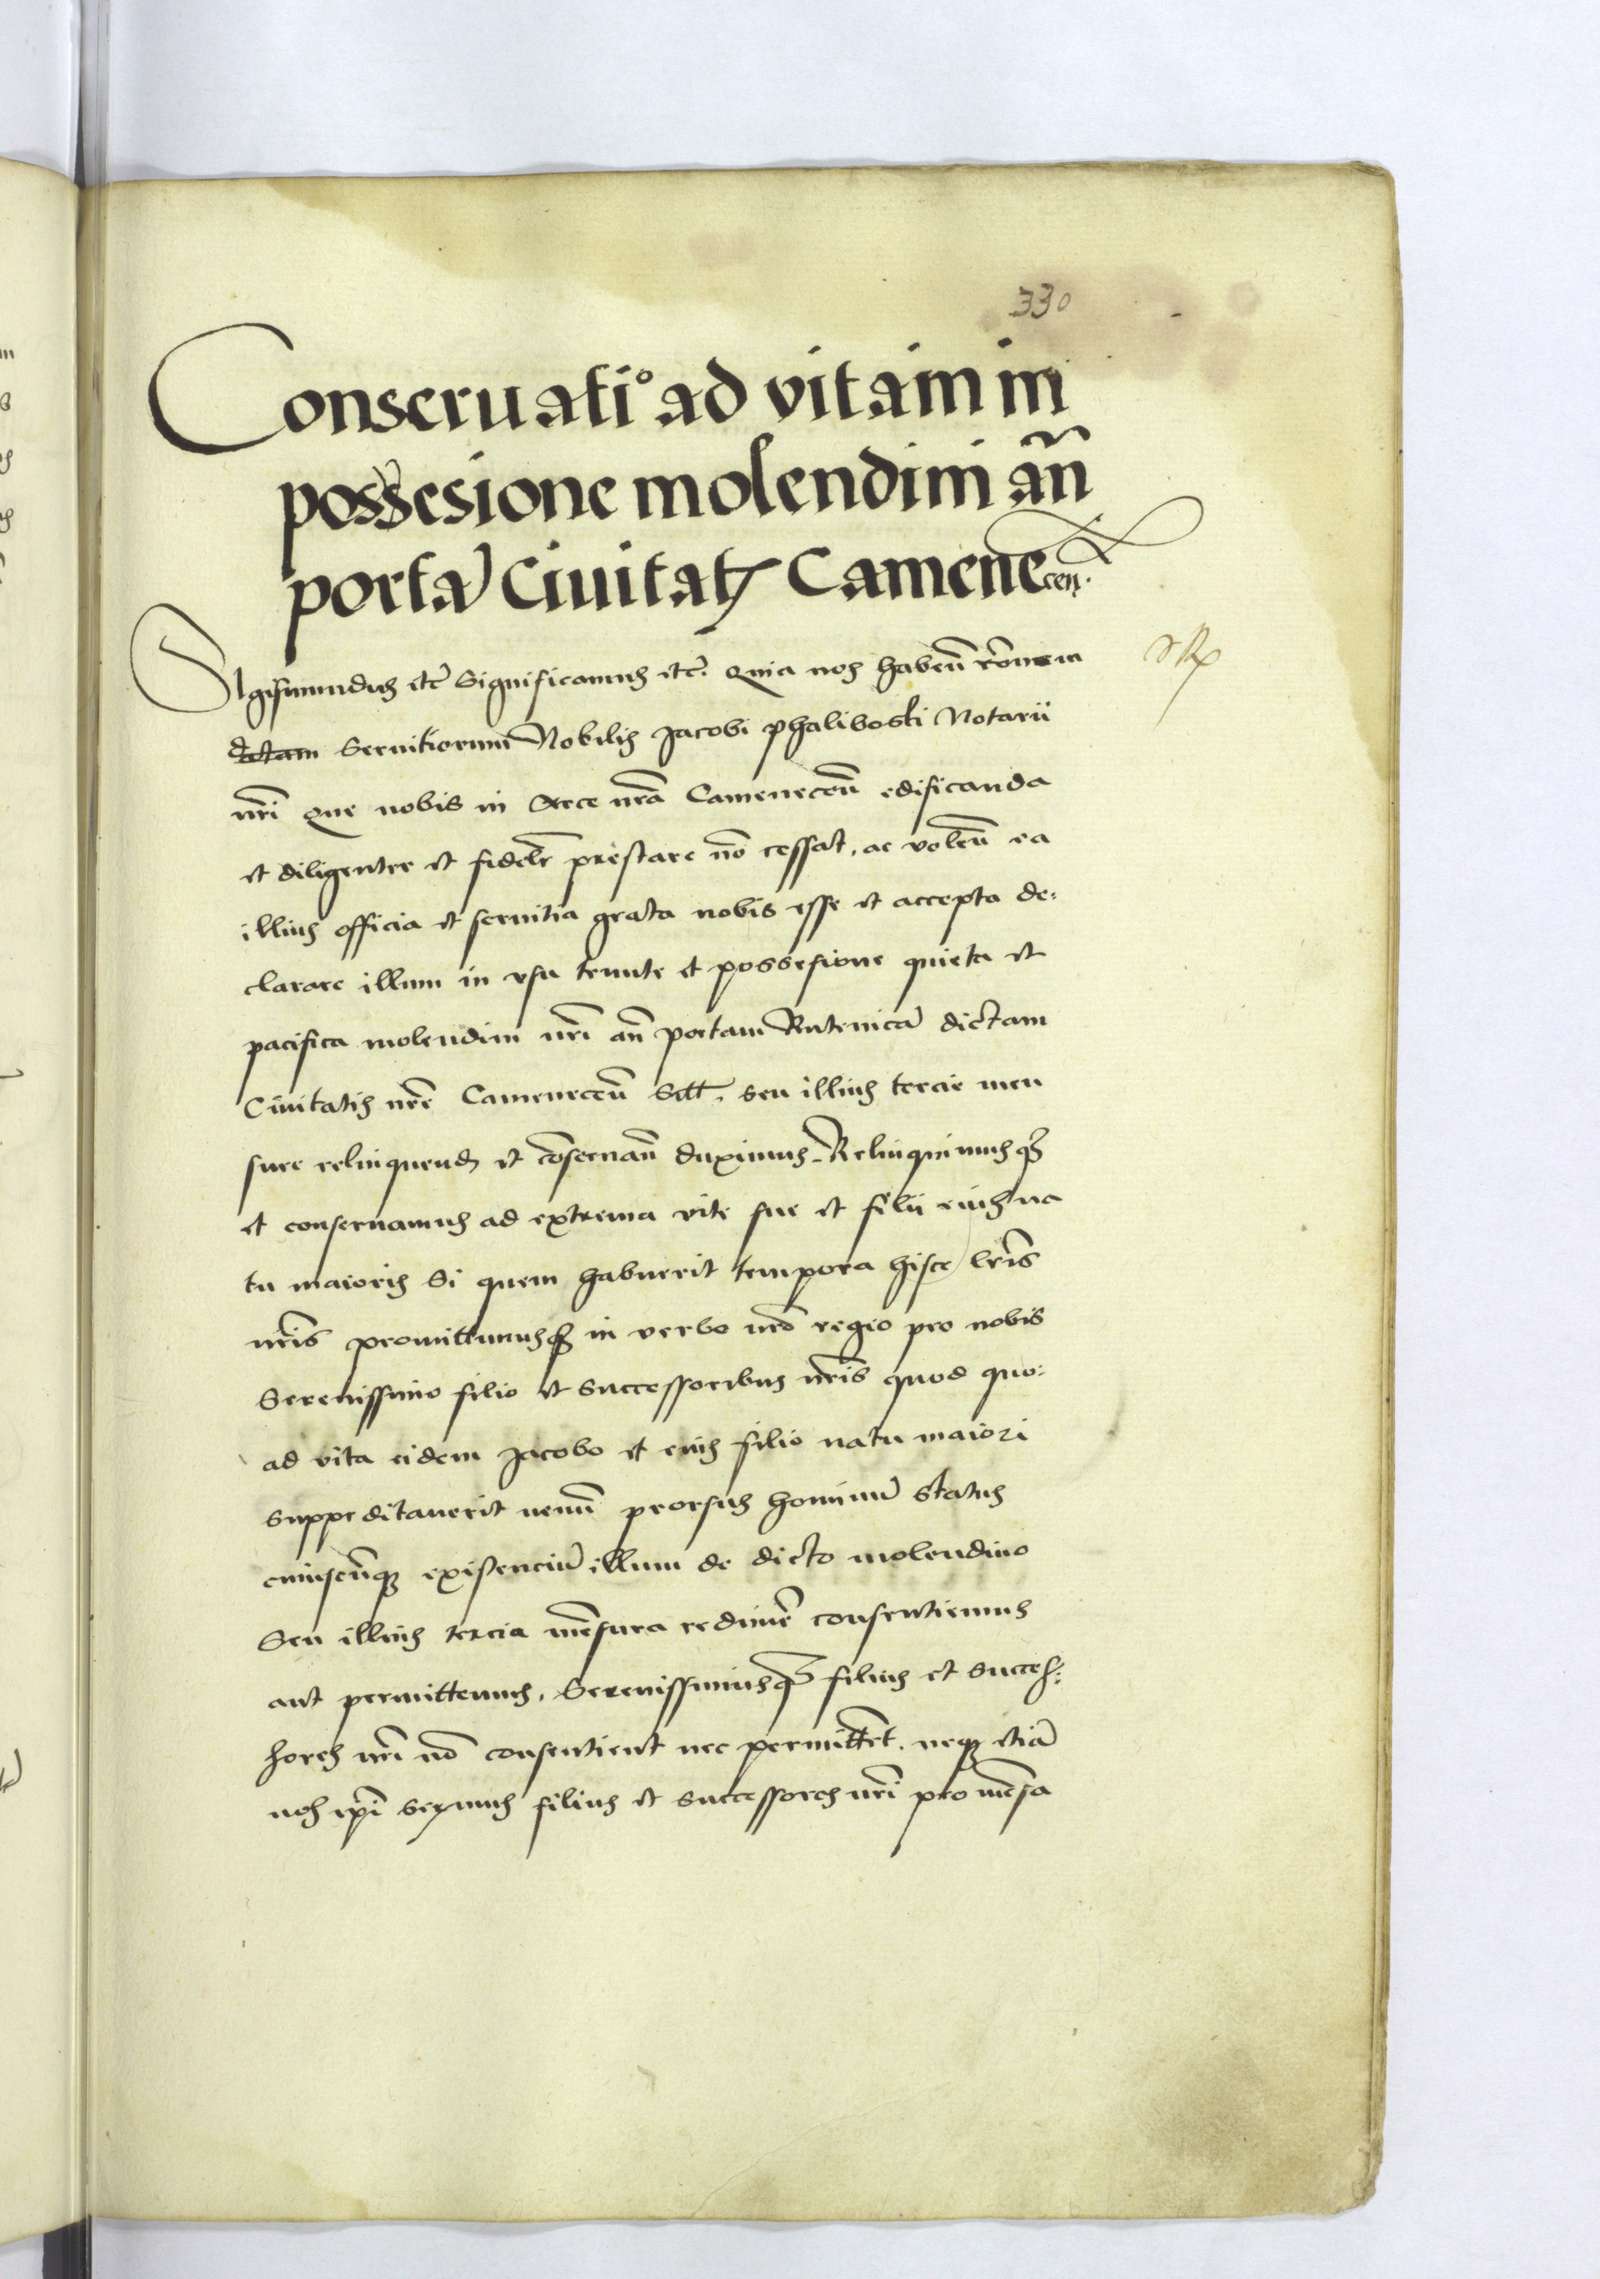 330
Conseruatiº ad vitam in
possesione molendini añ
portā Ciuitatꝭ Camenecen̄.
Sigismundus etc̄ Significamus etc̄. Quia nos habeñ rõnem
d̶c̶t̶a̶m̶ Seruitiorum Nobilis Jacobi phaliboski Notarii
nr̃i que nobis in Arce nr̃a Cameneceñ edificanda
et diligenter et fidelr̃ prestare nõ cessat, ac voleñ ea
illius officia et seruitia grata nobis esse et accepta de:
clarare illum in vsu tenute et possesione quieta et
pacifica molendini nr̃i añ portam Rutenicā dictam
Ciuitatis nr̃e Cameneceñ Siti. seu illius tercie men
sure relinquend et cõseruañ duximus. Relinquimusqꝫ
et conseruamus ad extrema vite sue et filii eius na
tu maioris Si quem habuerit tempora hisce lr̃is
nr̃is promittimusqꝫ in verbo nr̃o regio pro nobis
Serenissimo filio et Successoribus nr̃is quod quo:
ad vita eidem Jacobo et eius filio natu maiori
Suppeditauerit nemĩ prorsus hominū Status
cuiuscũqꝫ existenciū illum de dicto molendino
Seu illius tercia mẽsura redimẽ consentiemus
aut permittemus, Serenissimusqꝫ filius et Succes:
sores nr̃i nõ consentient nec permittẽt. neqꝫ etiā
nos ip̃i Serᵐus filius et Successores nr̃i pro mẽsa